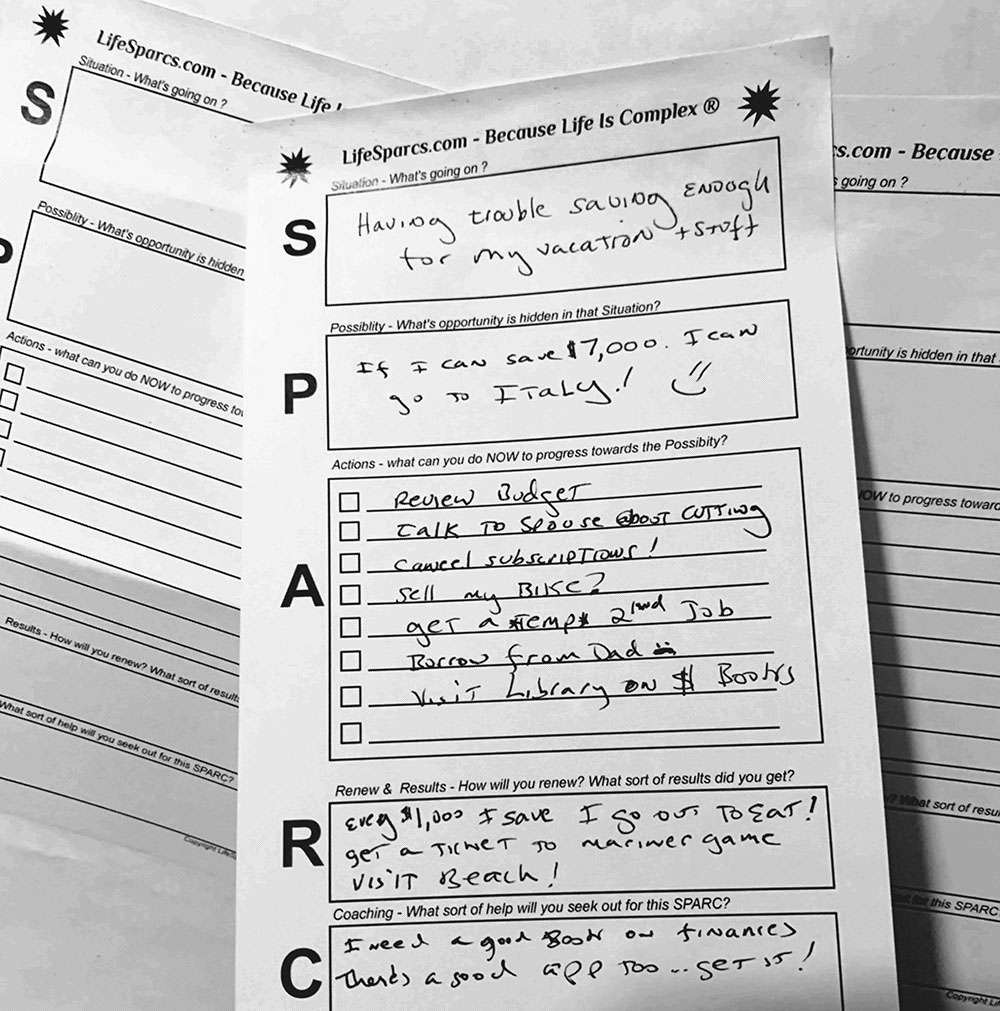 LifeSparcs.com - Because Life I
Situation - What's going on ?
S
Possiblity - What's opportunity is hidden
Actions - what can you do NOW to progress tow
Results - How will you renew? What sort of results
What sort of help will you seek out for this SPARC?
Copyright Life
LifeSparcs.com - Because Life Is Complex ®
Situation - What's going on ?
S
Having trouble saving enough
for my vacation + stuff
Possiblity - What's opportunity is hidden in that Situation?
P
If I can save $7,000. I can
go to ITaLy!
Actions - what can you do NOW to progress towards the Possibity?
A
Review Budget
Talk to spouse about cutting
cancel subscriptions!
sell my Bike?
get a temp 2nd Job
Borrow from Dad
Visit Library on $ Books
Renew & Results - How will you renew? What sort of results did you get?
R
Every $1,000 I save I go out To Eat!
get a Ticket to mariner game
visit Beach!
Coaching - What sort of help will you seek out for this SPARC?
C
I need a good Book on finances
There's a good app too... get it!
cs.com - Because
s going on ?
portunity is hidden in that
NOW to progress toward
? What sort of resu
out for this SPARC
Copyright Li